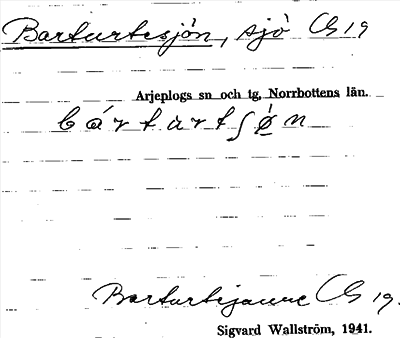 Barturtesjön, sjö Gs 19
Arjeplogs sn och tg, Norrbottens län.
bártartʃøn
Barturtejaure Gs 19.
Sigvard Wallström, 1941.